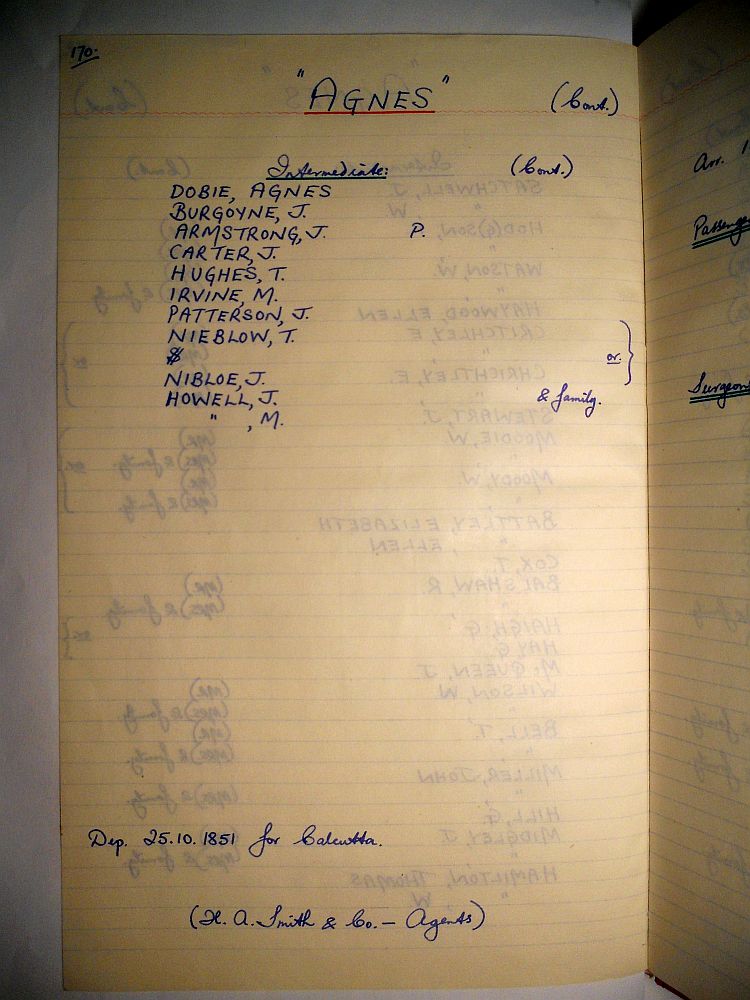 170.
"AGNES" (Cont.)
Intermediate: (Cont.)
DOBIE, AGNES
BURGOYNE, J.
ARMSTRONG, J. P.
CARTER, J.
HUGHES, T.
IRVINE, M.
PATTERSON, J.
NIEBLOW, T.
or.
NIBLOE, J.
HOWELL, J. & family.
" , M.
Dep. 25.10.1851 for Calcutta.
(H. A. Smith & Co. — Agents)
Arr. 1
Passenge
Surgeon